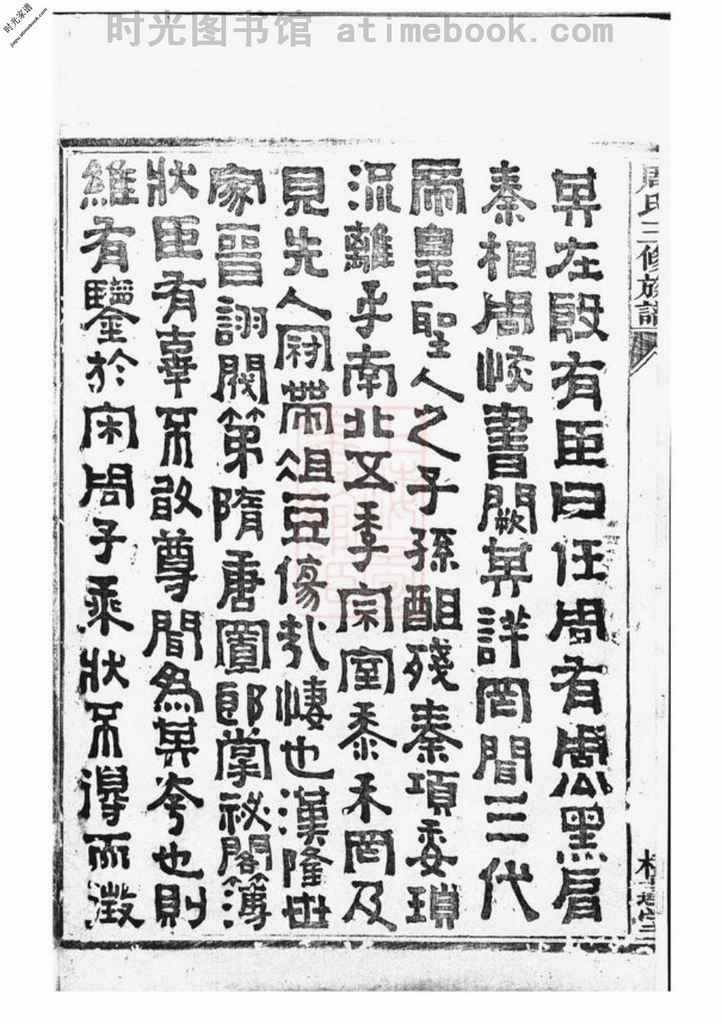 时光图书馆 atimebook.com
时光家谱
jiapu.atimebook.com
周氏三修族譜
其在殷有臣曰任周有周黑肩
秦相周 書闕其詳罔聞三代
而皇聖人之子孫 殘秦項委瑣
流離乎南北又季宗室黍禾罔及
見先人冠帶俎豆 也漢隆世
家晉詡閥第隋唐 郎掌祕閣簿
狀臣有 不敢尊聞為其夸也則
維有鑒於宋周子乘狀不得而徵